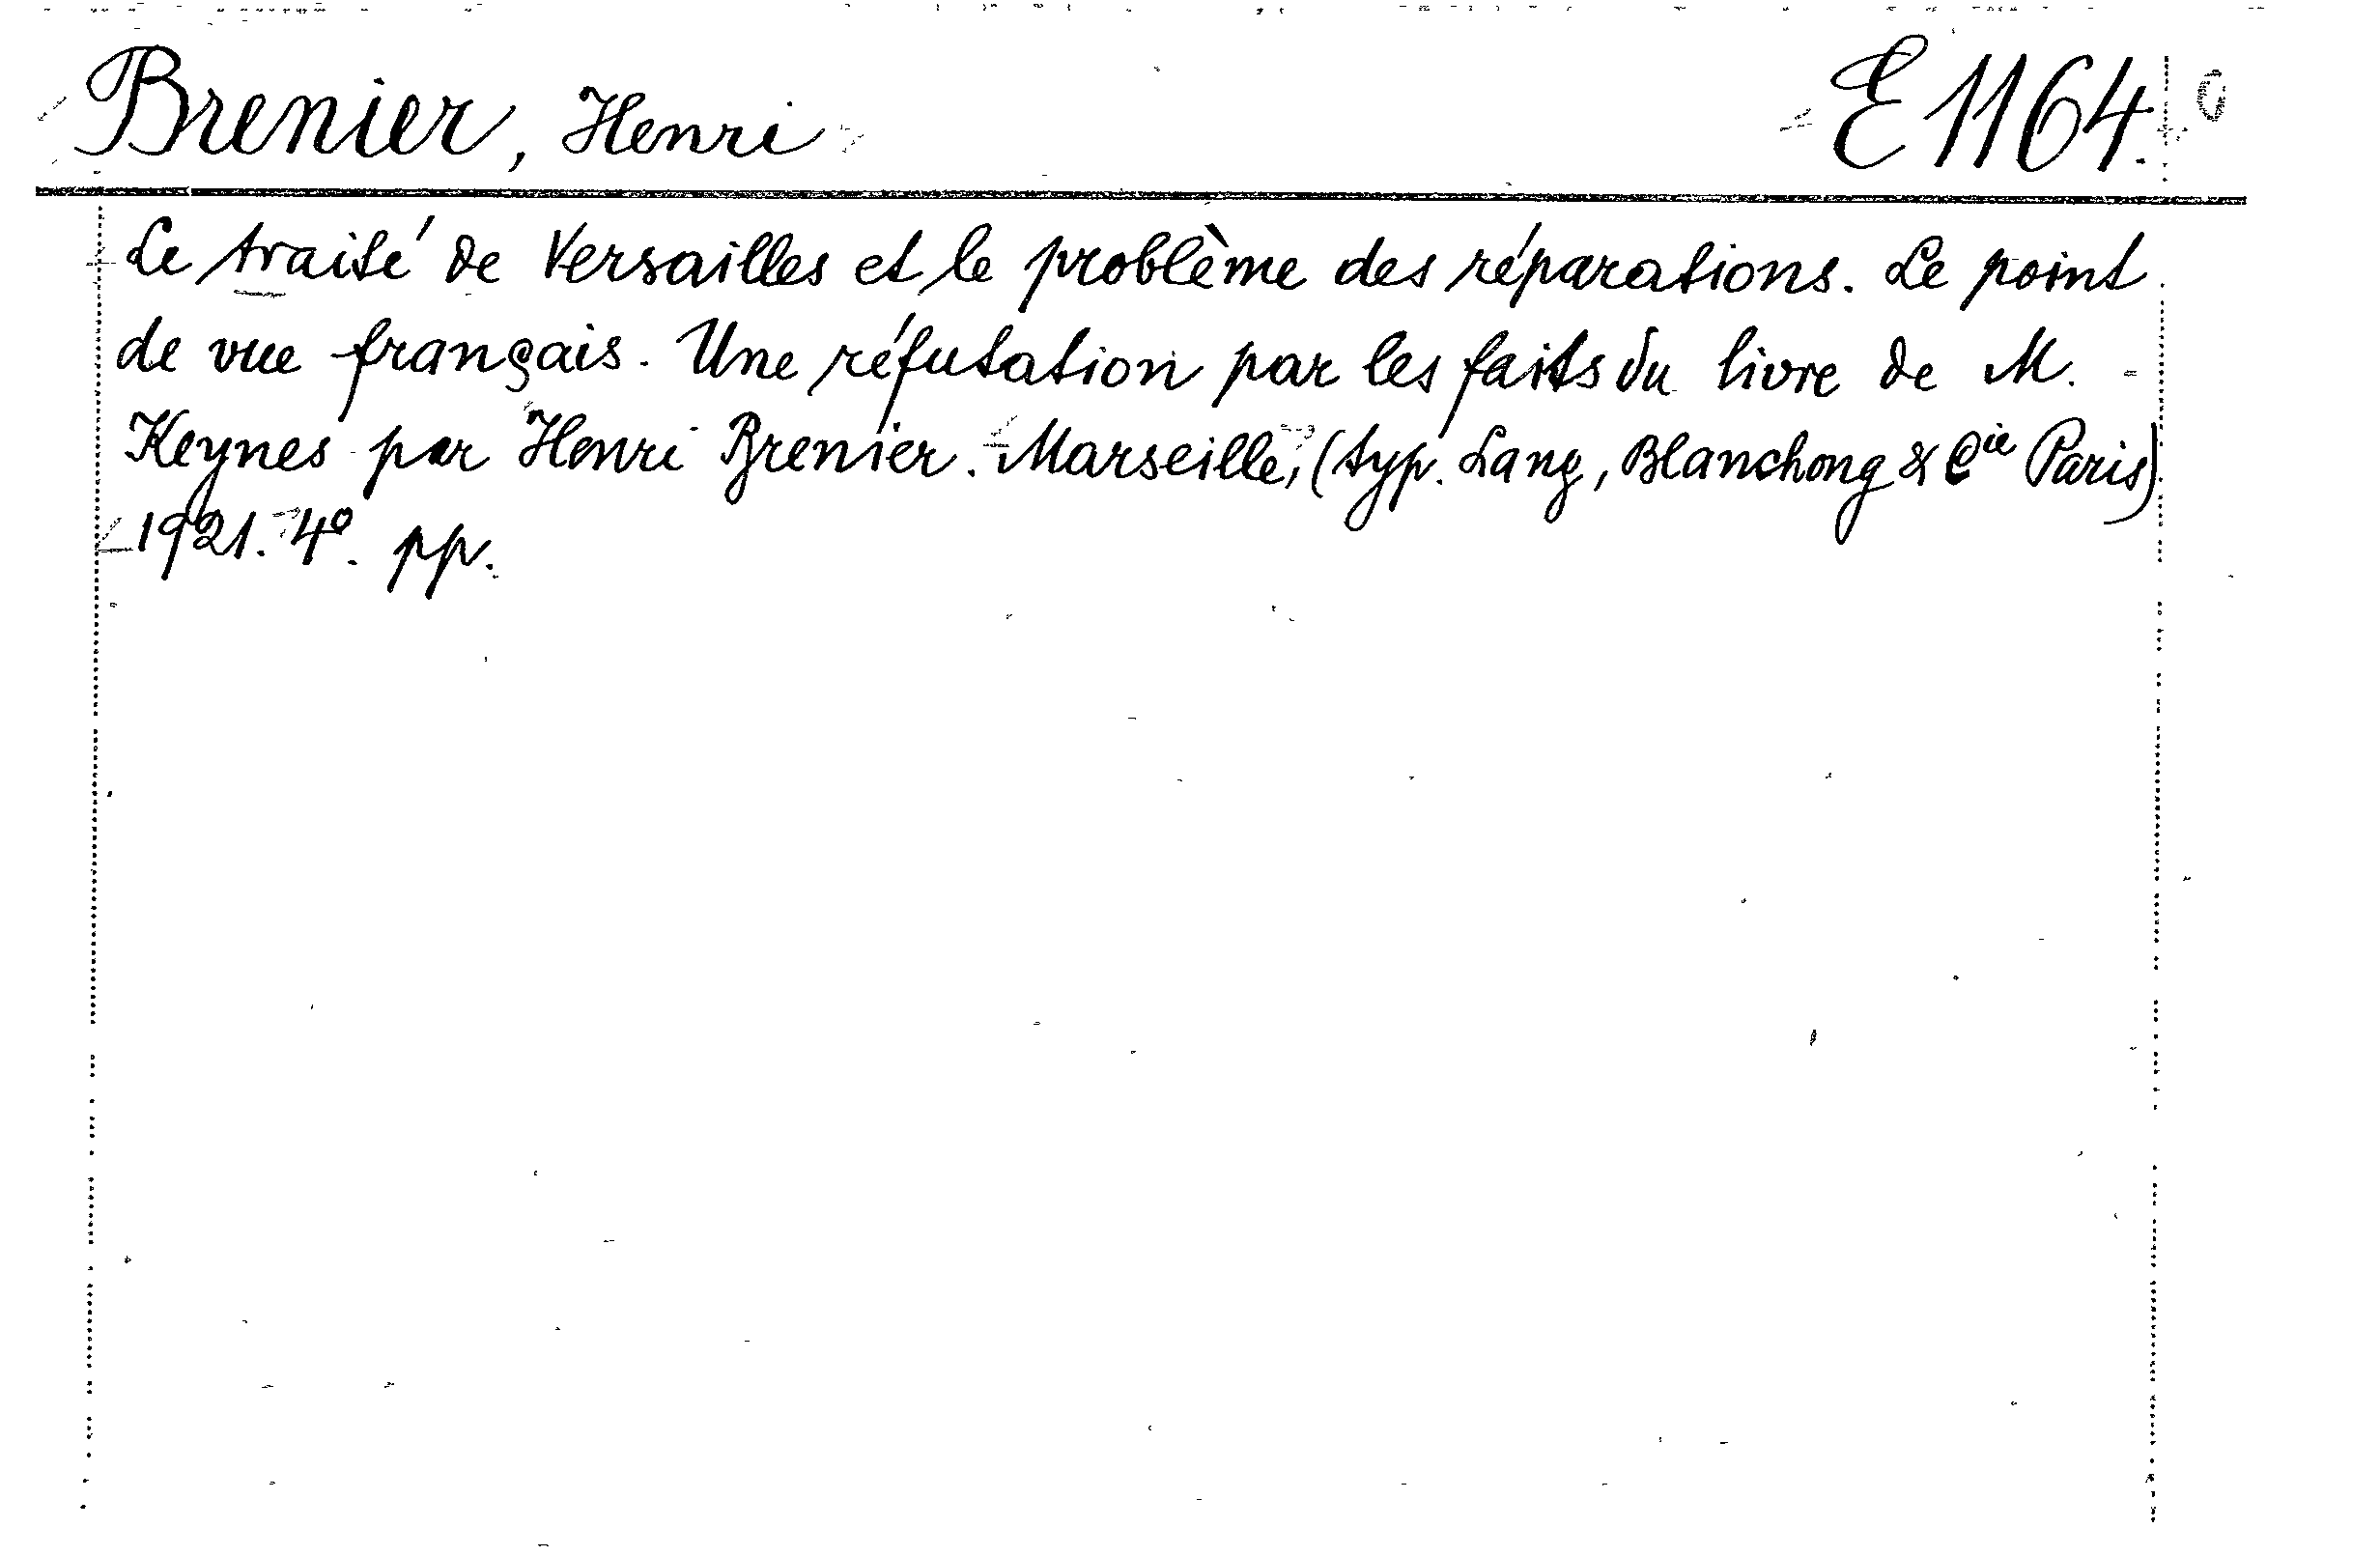 Brenier, Henri E 1164.
Le traité de Versailles et le problème des réparations. Le point
de vue français. Une réfutation par les faits du livre de M.
Keynes par Henri Brenier. Marseille, (typ. Lang, Blanchong & Cie Paris)
1921. 4º. pp.